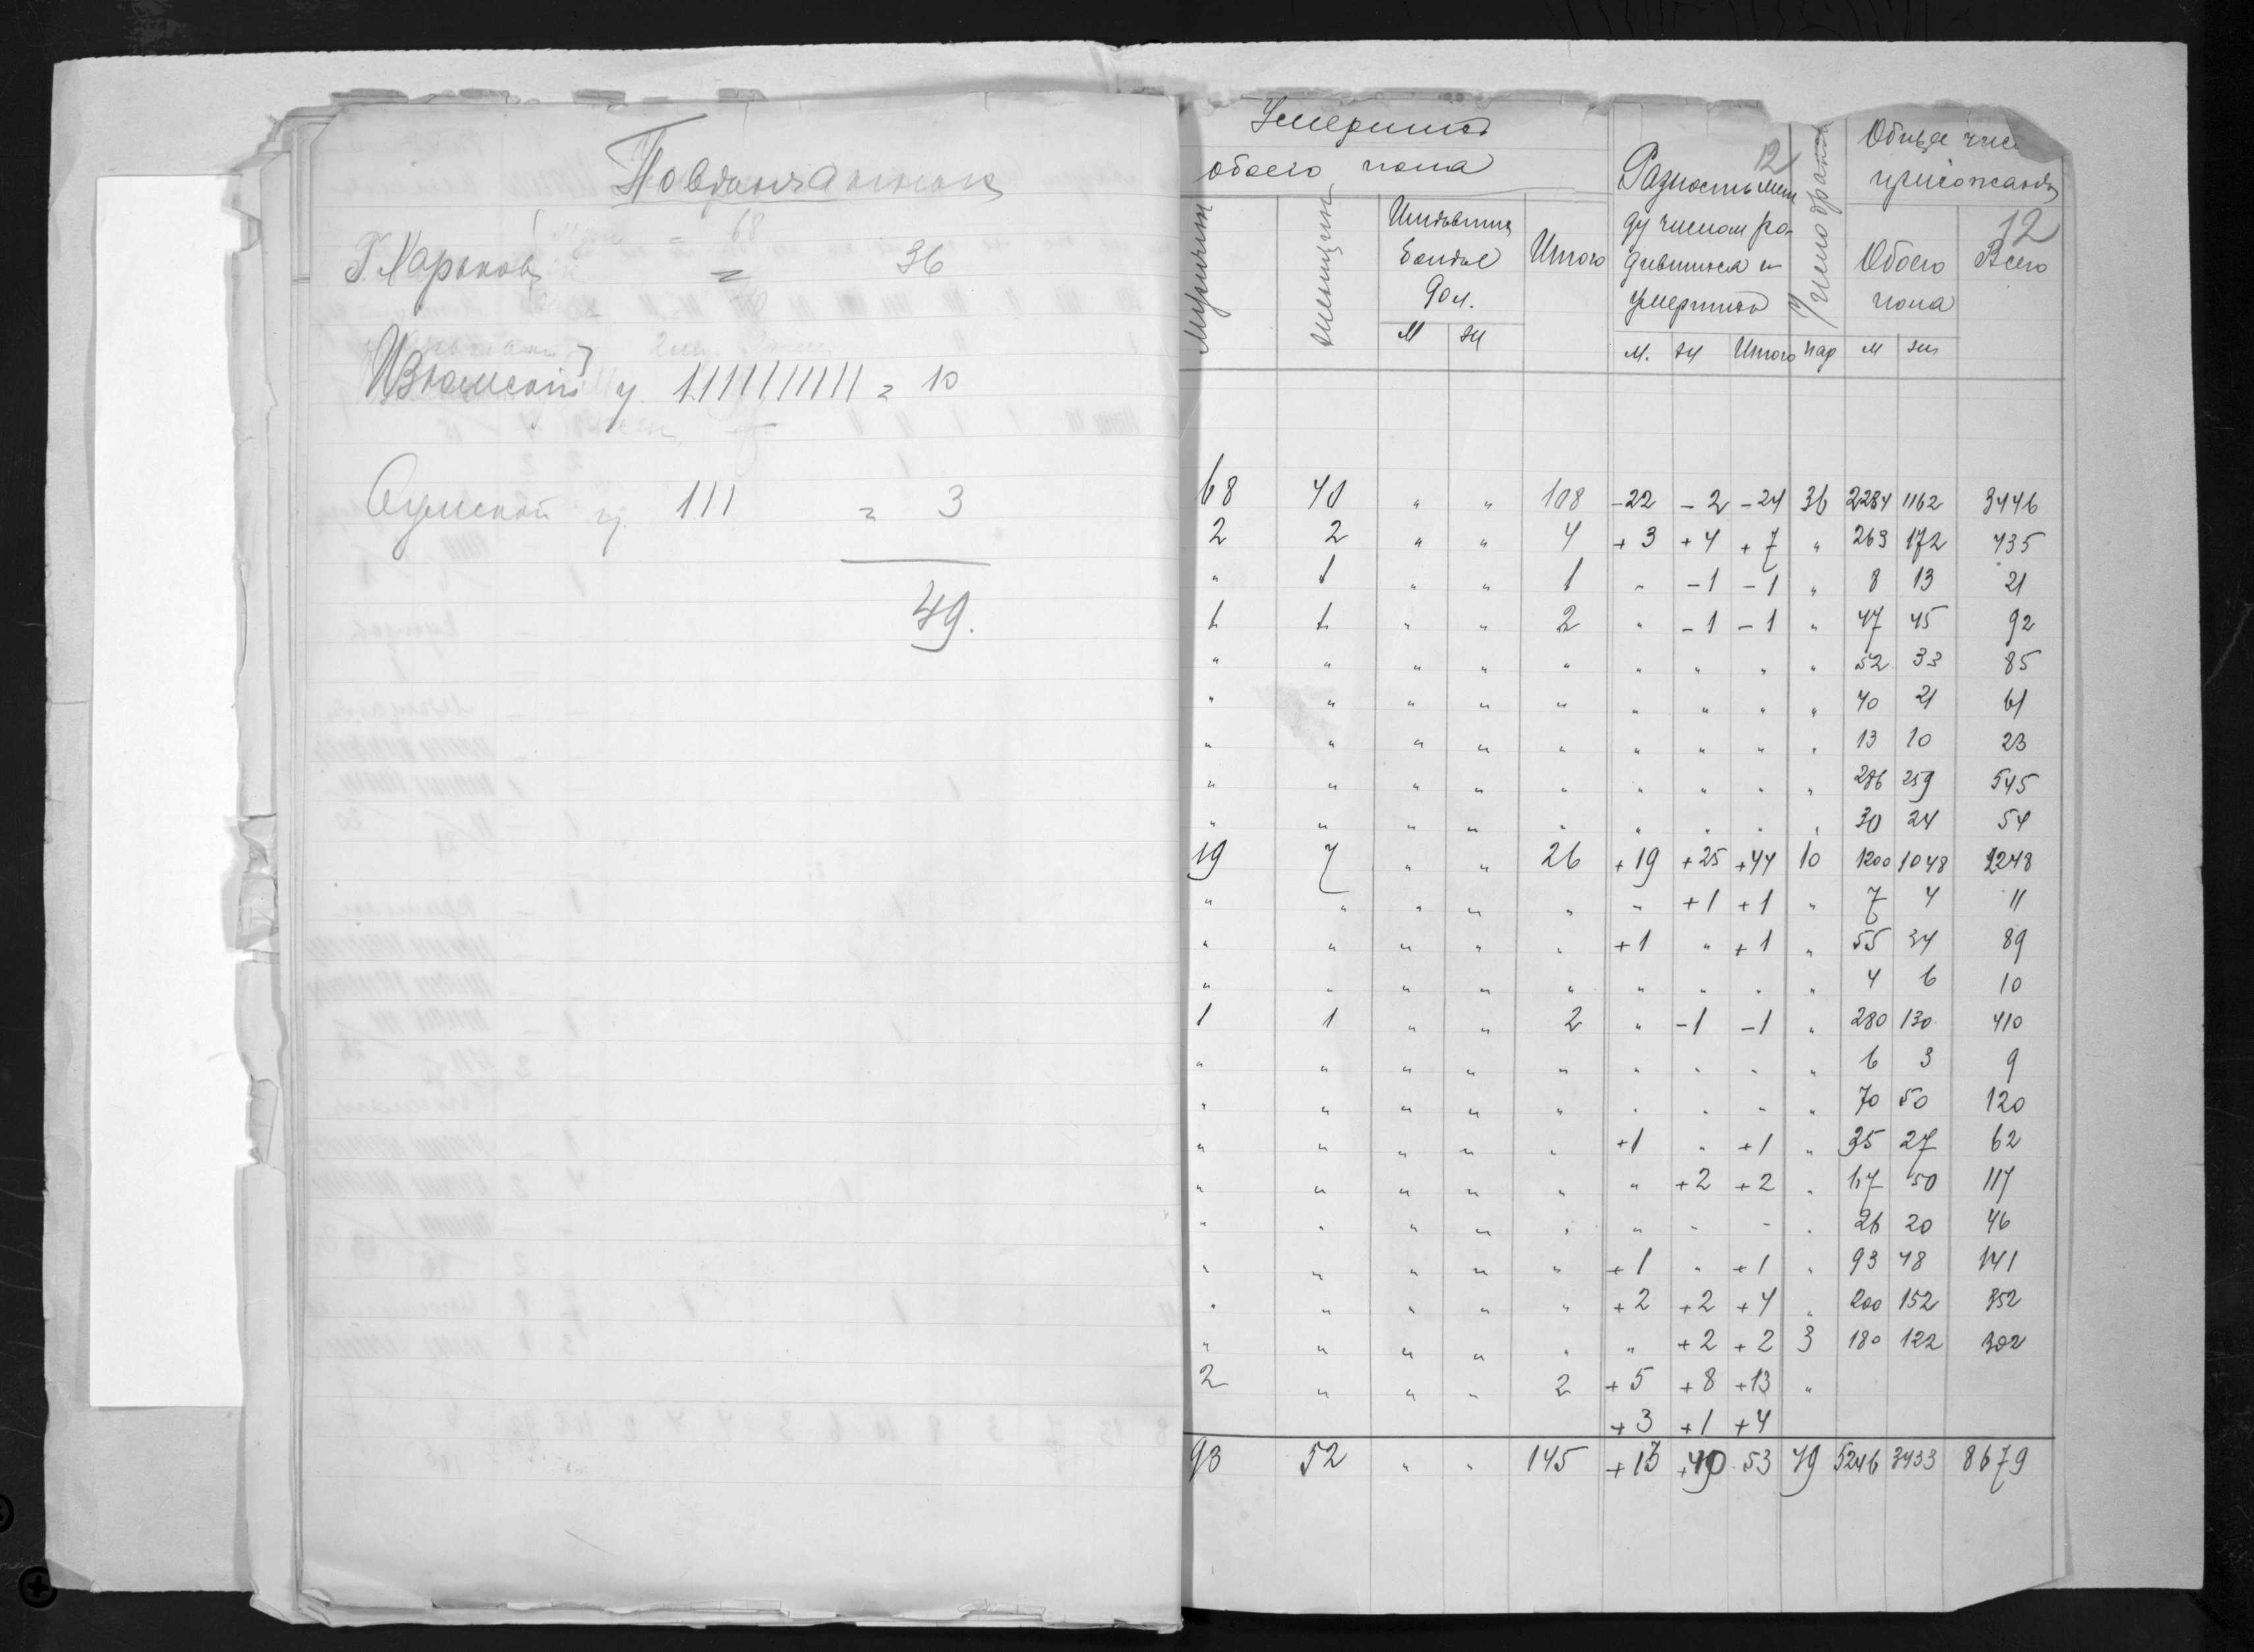 Г. Харьков = 36
Изюмской у. 1111111111 = 10
Сумской у. 111 = 3
49.
Умерших
обоего пола
Мущинъ
женщинъ
Итого
М ж
12
Разность меж
ду числом ро-
дившихся и
умерших
м. ж Итого
Число браков
пар
Общее чис
прихожанъ
12
Обоего
пола
Всего
м ж
68 40 " " 108 -22 -2 -24 36 2284 1162 3446
2 2 " " 4 +3 +4 +7 " 263 172 435
" 1 " " 1 " -1 -1 " 8 13 21
1 1 " " 2 " -1 -1 " 47 45 92
" " " " " " " " " 52 33 85
" " " " " " " " " 40 21 61
" " " " " " " " " 13 10 23
" " " " " " " " " 286 259 545
" " " " " " " " " 30 24 54
19 7 " " 26 +19 +25 +44 10 1200 1048 2248
" " " " " " +1 +1 " 7 4 11
" " " " " +1 " +1 " 55 34 89
" " " " " " " " " 4 6 10
1 1 " " 2 " -1 -1 " 280 130 410
" " " " " " " " " 6 3 9
" " " " " " " " " 70 50 120
" " " " " +1 " +1 " 35 27 62
" " " " " " +2 +2 " 67 50 117
" " " " " " " " " 26 20 46
" " " " " +1 " +1 " 93 48 141
" " " " " +2 +2 +4 " 200 152 352
" " " " " " +2 +2 3 180 122 302
2 " " " 2 +5 +8 +13 "
+3 +1 +4
93 52 " " 145 +13 +40 53 49 5246 3433 8679